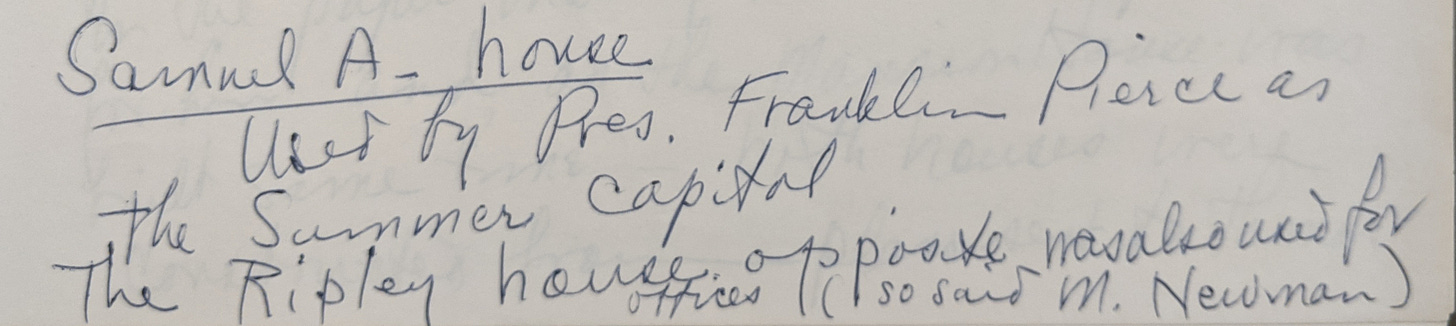 Samuel A- house
Used by Pres. Franklin Pierce as
the Summer capitol
The Ripley house opposite was also used for
offices (so said M. Newman)